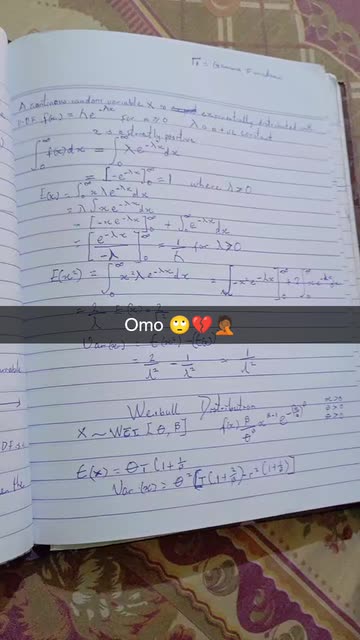 Γ = Gamma Function
A continuous random variable X is exponentially distributed with
P.D.F f(x) = λe^-λx for x ≥ 0 λ is a +ve constant
x is strictly positive
∫₀^∞ f(x)dx = ∫₀^∞ λe^-λx dx
= [-e^-λx]₀^∞ = 1 where λ>0
E(x) = ∫₀^∞ xλe^-λx dx
= λ∫xe^-λx dx
= [-xe^-λx]₀^∞ + ∫₀^∞ e^-λx dx
= [e^-λx / -λ]₀^∞ = 1/λ for λ>0
E(x²) = ∫₀^∞ x²λe^-λx dx = [-x²e^-λx]₀^∞ + 2∫₀^∞ xe^-λx dx
Omo 🙄💔🤦🏾
= 2/λ² - 1/λ² = 1/λ²
Weibull Distribution
X ~ WEI [θ, β]
E(x) = θΓ(1+1/β)
Var(x) = θ²[Γ(1+2/β) - Γ²(1+1/β)]